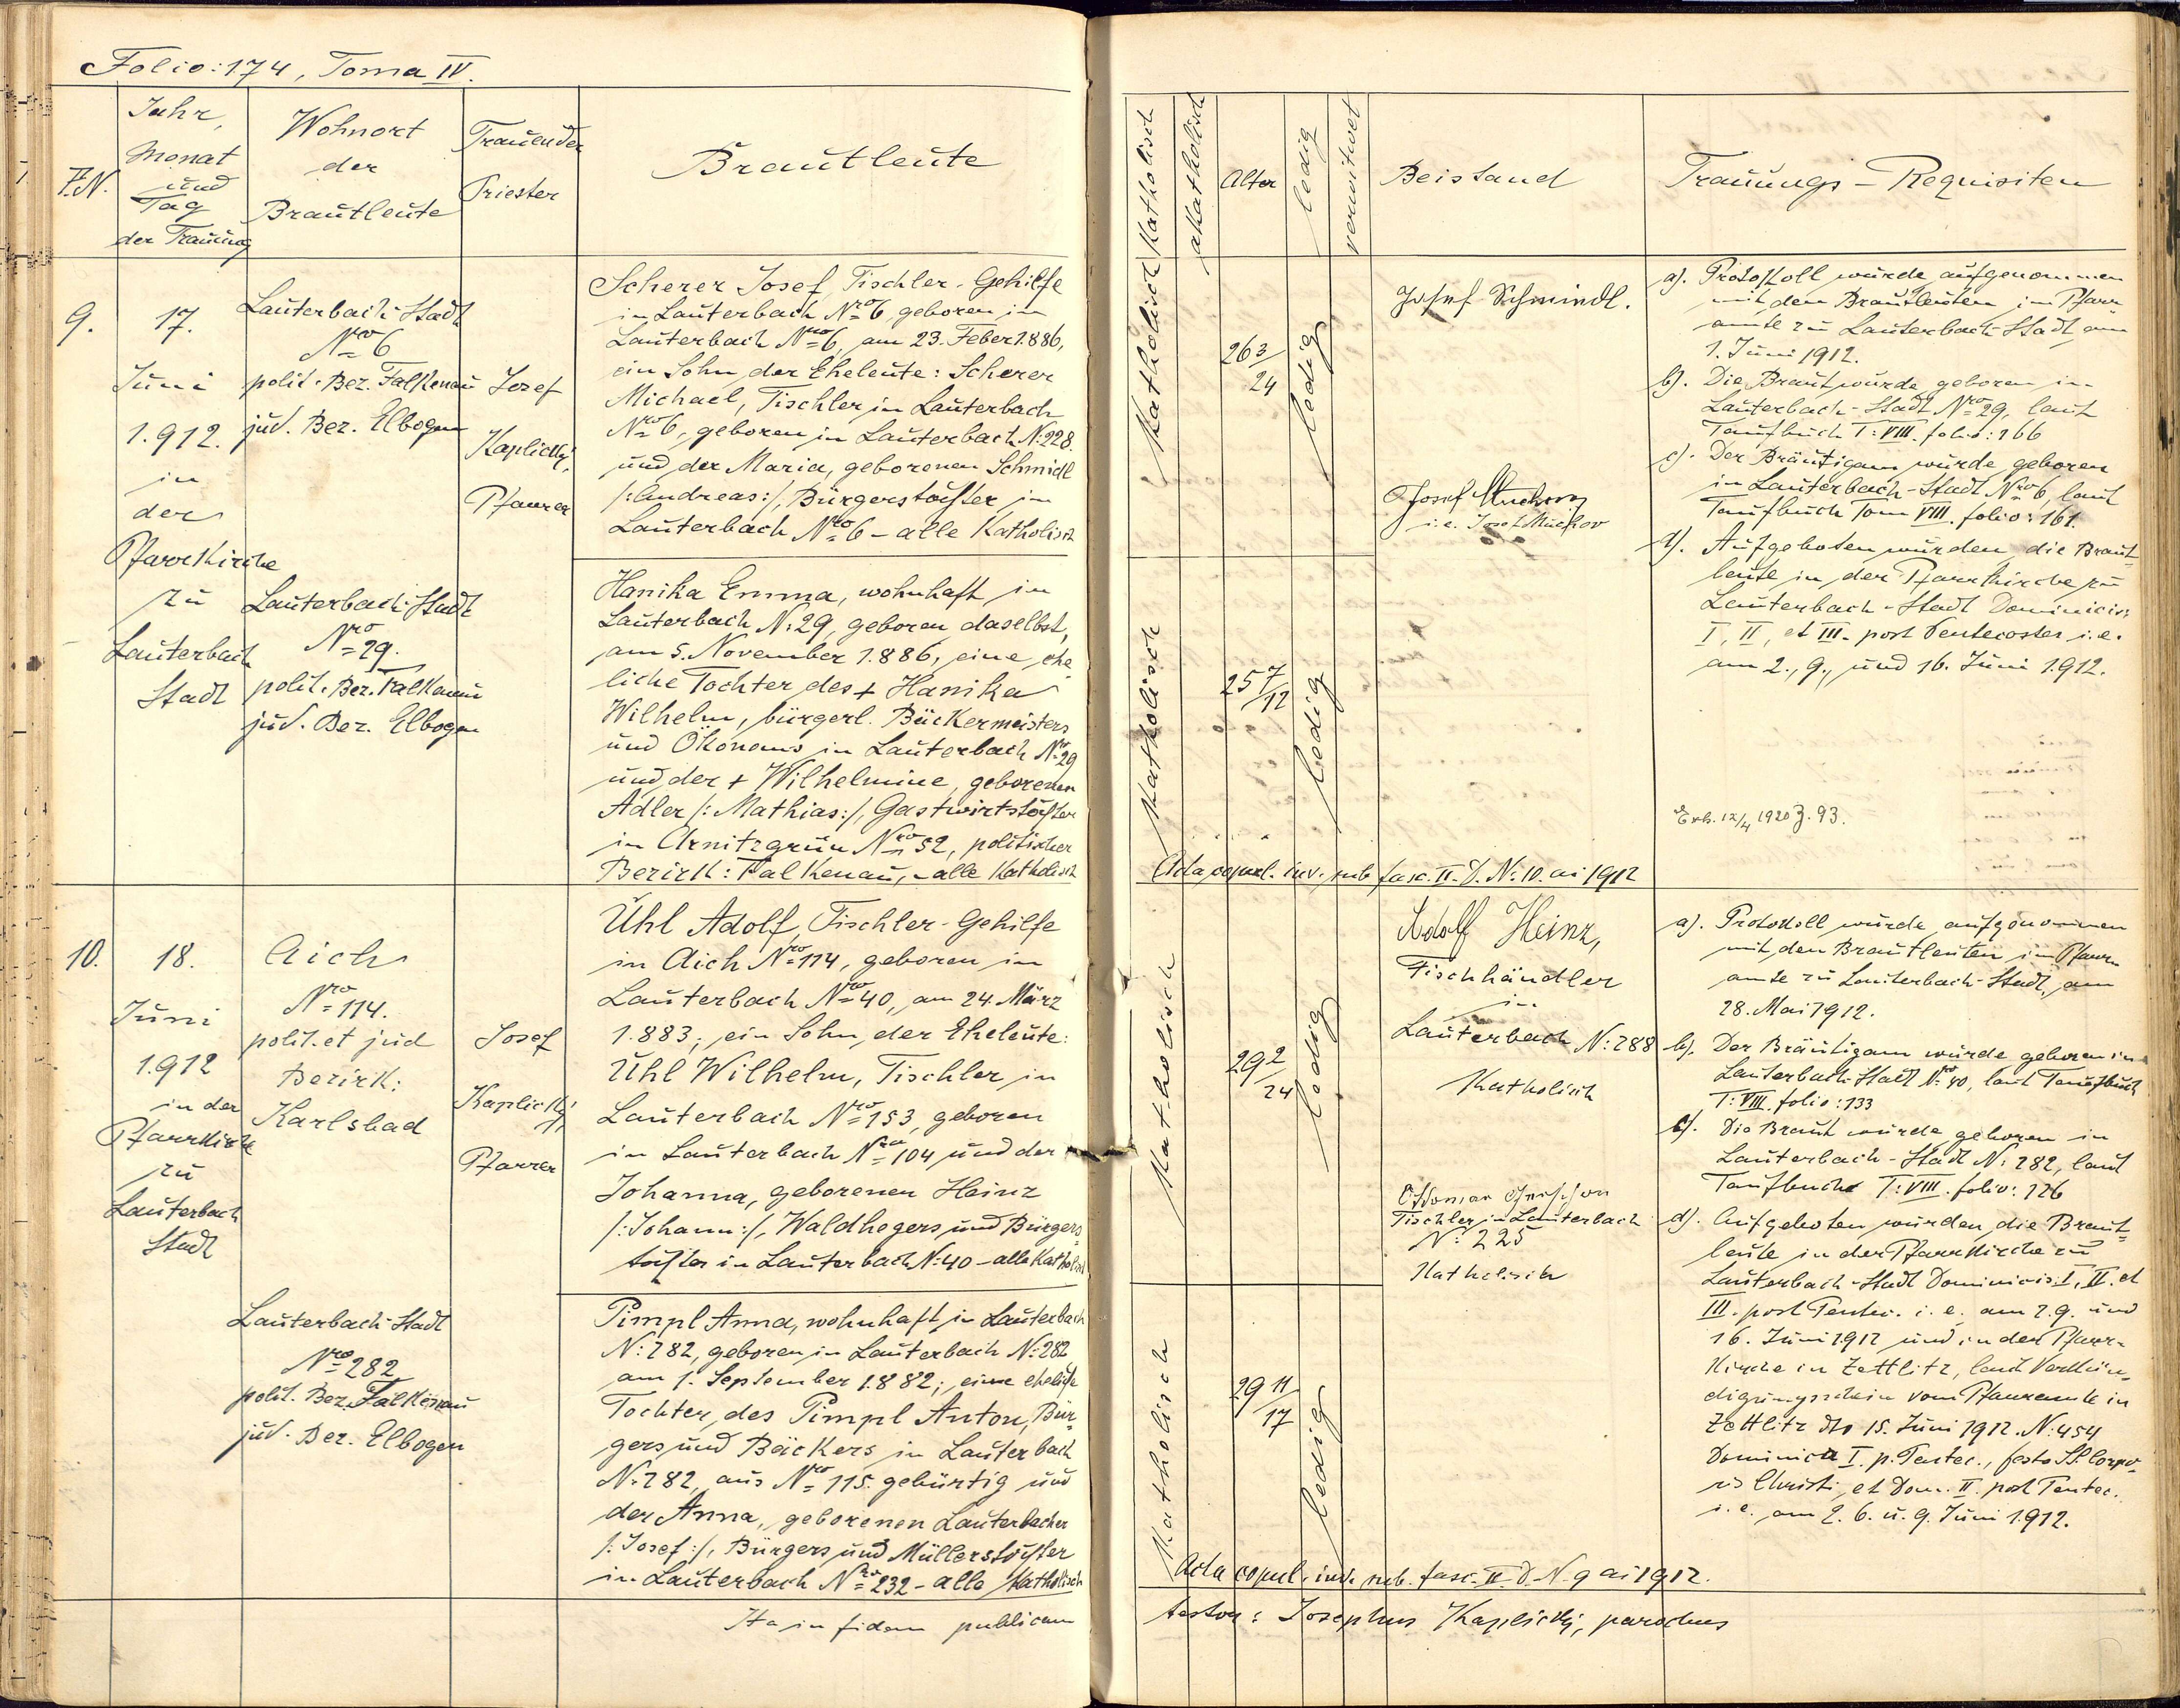 Folio: 174, Toma IV.
F.N.
Jahr,
Monat
und
Tag
der Trauung
Wohnort
der
Brautleute
Trauender
Priester
Brautleute
Katholisch
akatholisch
Alter
ledig
verwitwet
Beistand
Trauungs-Requisiten
9.
17.
Juni
1.912.
in
der
Pfarrkirche
zu
Lauterbach
Stadt
Lauterbach-Stadt
Nro 6
polit. Bez. Falkenau
jud. Bez. Elbogen
Lauterbach-Stadt
Nro 29.
polit. Bez. Falkenau
jud. Bez. Elbogen
Josef
Kaplický,
Pfarrer
Scherer Josef, Tischler-Gehilfe
in Lauterbach Nro 6, geboren in
Lauterbach Nro 6, am 23. Feber 1.886,
ein Sohn der Eheleute: Scherer
Michael, Tischler in Lauterbach
Nro 6, geboren in Lauterbach N: 228.
und der Maria, geborenen Schmidl
/: Andreas :/, Bürgerstochter in
Lauterbach Nro 6 - alle Katholisch
Hanika Emma, wohnhaft in
Lauterbach N: 29, geboren daselbst,
am 5. November 1.886, eine ehe
liche Tochter des + Hanika
Wilhelm, bürgerl. Bäckermeisters
und Ökonoms in Lauterbach Nro 29
und der + Wilhelmine, geborenen
Adler /: Mathias :/, Gastwirtstochter
in Arnitzgrün Nro 52, politischer
Bezirk: Falkenau, - alle Katholisch
Katholisch
26 3/24
ledig
Katholisch
25 7/12
ledig
Josef Schmindl.
Josef
i.e. Josef
a). Protokoll wurde aufgenommen
mit den Brautleuten im Pfarr
amte zu Lauterbach-Stadt, am
1. Juni 1912.
b). Die Braut wurde geboren in
Lauterbach-Stadt Nro 29, laut
Taufbuch T: VIII. folio: 166
c). Der Bräutigam wurde geboren
in Lauterbach-Stadt Nro 6, laut
Taufbuch Tom VIII. folio: 161.
d). Aufgeboten wurden die Braut=
leute in der Pfarrkirche zu
Lauterbach-Stadt Dominicis:
I, II, et III. post Pentecostes i.e.
am 2., 9., und 16. Juni 1.912.
Erh. 12/4 1920 Z. 93.
Acta copul. inv. sub fasc. II. D. N: 10. ai 1912
10.
18.
Juni
1.912
in der
Pfarrkirche
zu
Lauterbach
Stadt
Aich
Nro 114.
polit. et jud
Bezirk:
Karlsbad
Lauterbach-Stadt
Nro 282
polit. Bez. Falkenau
jud. Bez. Elbogen
Josef
Kaplický,
Pfarrer
Uhl Adolf, Tischler-Gehilfe
in Aich Nro 114, geboren in
Lauterbach Nro 40, am 24. März
1.883; ein Sohn der Eheleute:
Uhl Wilhelm, Tischler in
Lauterbach Nro 153, geboren
in Lauterbach Nro 104 und der
Johanna, geborenen Heinz
/: Johann :/, Waldhegers und Bürgers=
tochter in Lauterbach N: 40 - alle Katholisch
Pimpl Anna, wohnhaft in Lauterbach
N: 282, geboren in Lauterbach N: 282
am 1. September 1.882; eine eheliche
Tochter, des Pimpl Anton, Bür=
gers und Bäckers in Lauterbach
N: 282, aus Nro 115. gebürtig und
der Anna, geborenen Lauterbacher
/: Josef :/, Bürgers und Müllerstochter
in Lauterbach Nro 232 - alle Katholisch
Ita in fidem publicam
Katholisch
29 2/24
ledig
Katholisch
29 11/17
ledig
Adolf Heinz,
Fischhändler
in
Lauterbach N: 288
Katholisch
Tischler in Lauterbach
N: 225
Katholisch
a). Protokoll wurde aufgenommen
mit den Brautleuten im Pfarr
amte zu Lauterbach-Stadt, am
28. Mai 1912.
b). Der Bräutigam wurde geboren in
Lauterbach-Stadt Nro 40, laut Taufbuch
T: VIII. folio: 133
c). Die Braut wurde geboren in
Lauterbach-Stadt N: 282, laut
Taufbuch T: VIII. folio: 126
d). Aufgeboten wurden die Braut=
leute in der Pfarrkirche zu
Lauterbach-Stadt Dominicis: I, II. et
III. post Pentec. i.e. am 2. 9. und
16. Juni 1912 und in der Pfarr=
kirche in Zettlitz, laut Verkün=
digungsschein vom Pfarramte in
Zettlitz dto 15. Juni 1912. N: 454
Dominica I. p. Pentec., festo SS. Corpo=
ris Christi, et Dom. II. post Pentec.
i.e. am 2. 6. u. 9. Juni 1.912.
Acta copul. inv. sub. fasc. II. D. N. 9 ai 1912.
testor: Josephus Kaplický, parochus